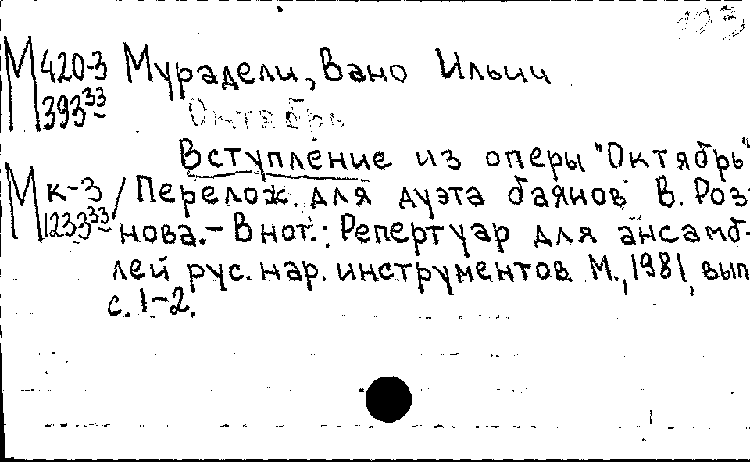 193
М 420-3 Мурадели, Вано Ильич
393 33 Октябрь
Вступление из оперы "Октябрь"
М к-3 / Перелож. для дуэта баянов В. Роз-
1233 33 нова.- В нот.: Репертуар для ансамб-
лей рус. нар. инструментов М., 1981, вып
с. 1-2.